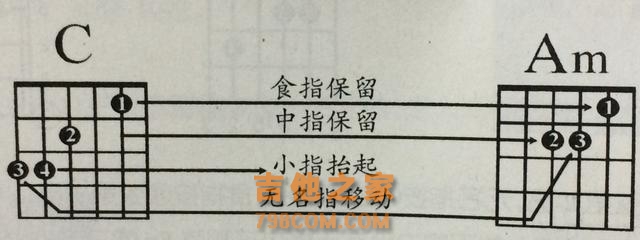 C
Am
食指保留
中指保留
小指抬起
无名指移动
1
2
3 4
1
2 3
吉他之家
798COM.COM